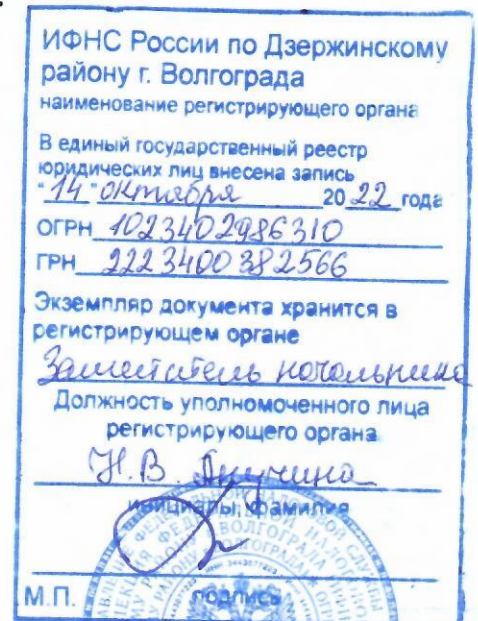 ИФНС России по Дзержинскому
району г. Волгограда
наименование регистрирующего органа
В единый государственный реестр
юридических лиц внесена запись
"14" октября 2022 года
ОГРН 1023402986310
ГРН 2223400382566
Экземпляр документа хранится в
регистрирующем органе
Заместитель начальника
Должность уполномоченного лица
регистрирующего органа
Н.В. Анучина
инициалы, фамилия
М.П. подпись